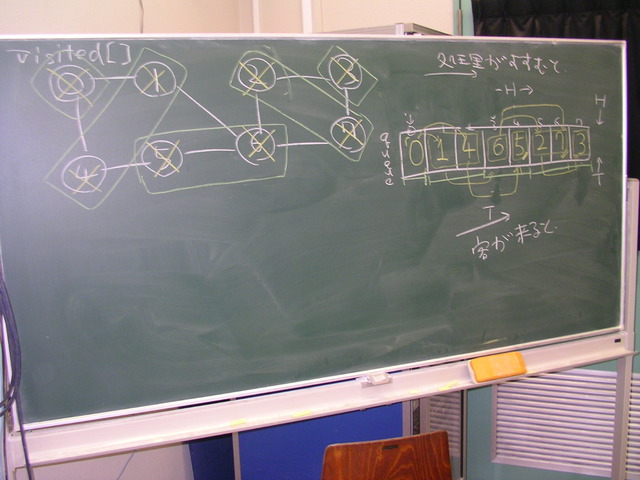 visited[]
0 1 2 3
4 5 6 7
処理がすすむと
-H→
H
queue
0 1 4 6 5 2 7 3
T
T
客が来ると